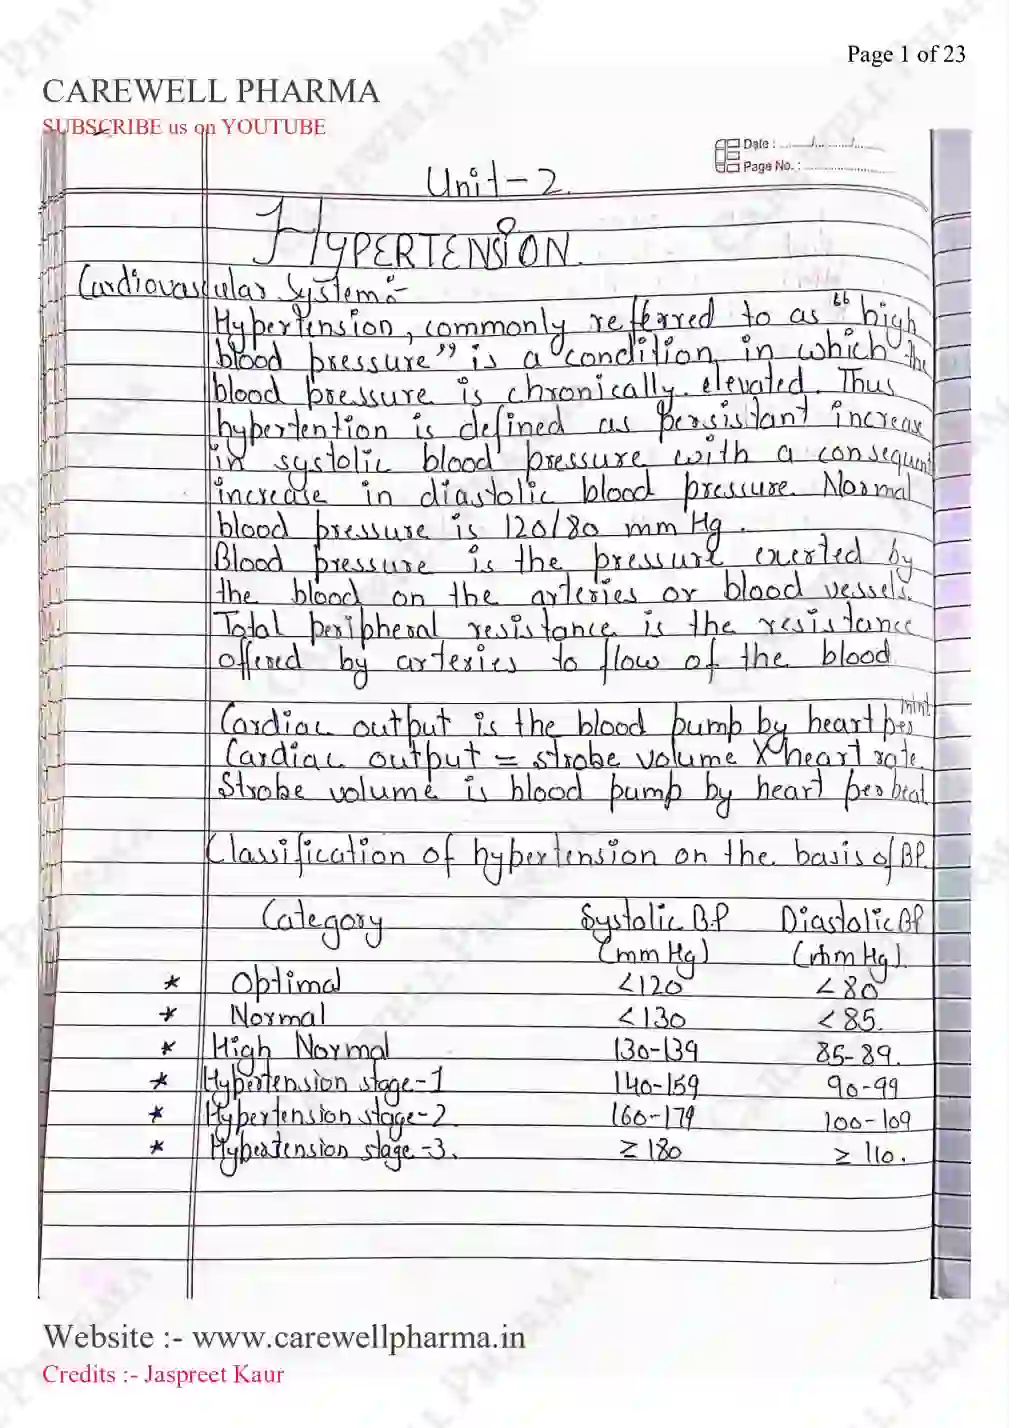 Page 1 of 23
CAREWELL PHARMA
SUBSCRIBE us on YOUTUBE
Date : ......./......./.......
Page No. : .......................
Unit-2.
HYPERTENSION.
Cardiovascular System:-
Hypertension, commonly referred to as "high
blood pressure" is a condition in which the
blood pressure is chronically elevated. Thus
hypertention is defined as persistant increase
in systolic blood pressure with a consequent
increase in diastolic blood pressure. Normal
blood pressure is 120/80 mm Hg.
Blood pressure is the pressure exerted by
the blood on the arteries or blood vessels.
Total peripheral resistance is the resistance
offered by arteries to flow of the blood
Cardiac output is the blood pump by heart per mint
Cardiac output = strobe volume X heart rate.
Strobe volume is blood pump by heart per beat
Classification of hypertension on the basis of BP.
Category Systolic B.P Diastolic BP
(mm Hg) (mm Hg).
* Optimal <120 <80
* Normal <130 <85.
* High Normal 130-139 85-89.
* Hypertension stage-1 140-159 90-99
* Hypertension stage-2 160-179 100-109
* Hypertension stage-3. ≥180 ≥110.
Website :- www.carewellpharma.in
Credits :- Jaspreet Kaur